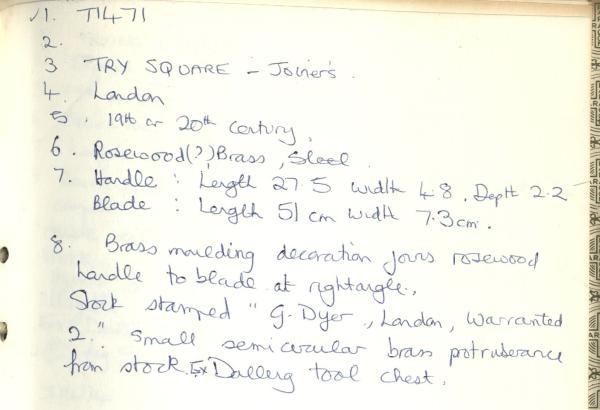 ✓1. T1471
2.
3 TRY SQUARE - Joiner's.
4. London
5. 19th or 20th century.
6. Rosewood(?), Brass, Steel
7. Handle : Length 27.5 width 4.8. Depth 2.2
Blade : Length 51 cm width 7.3cm.
8. Brass moulding decoration joins rosewood
handle to blade at rightangle.
Stock stamped "G. Dyer, London, Warranted
2." Small semicircular brass protruberance
from stock. Ex Dalling tool chest.